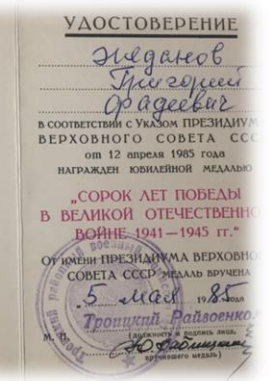 УДОСТОВЕРЕНИЕ
Жданов
Григорий
Фадеевич
В СООТВЕТСТВИИ С УКАЗОМ ПРЕЗИДИУМ
ВЕРХОВНОГО СОВЕТА ССС
от 12 апреля 1985 года
НАГРАЖДЕН ЮБИЛЕЙНОЙ МЕДАЛЬЮ
„СОРОК ЛЕТ ПОБЕДЫ
В ВЕЛИКОЙ ОТЕЧЕСТВЕННО
ВОЙНЕ 1941—1945 гг.“
ОТ ИМЕНИ ПРЕЗИДИУМА ВЕРХОВНО
СОВЕТА СССР МЕДАЛЬ ВРУЧЕНА
5 мая 1985 года
Троицкий Райвоенко
М. П. (должность и подпись лица,
вручившего медаль)